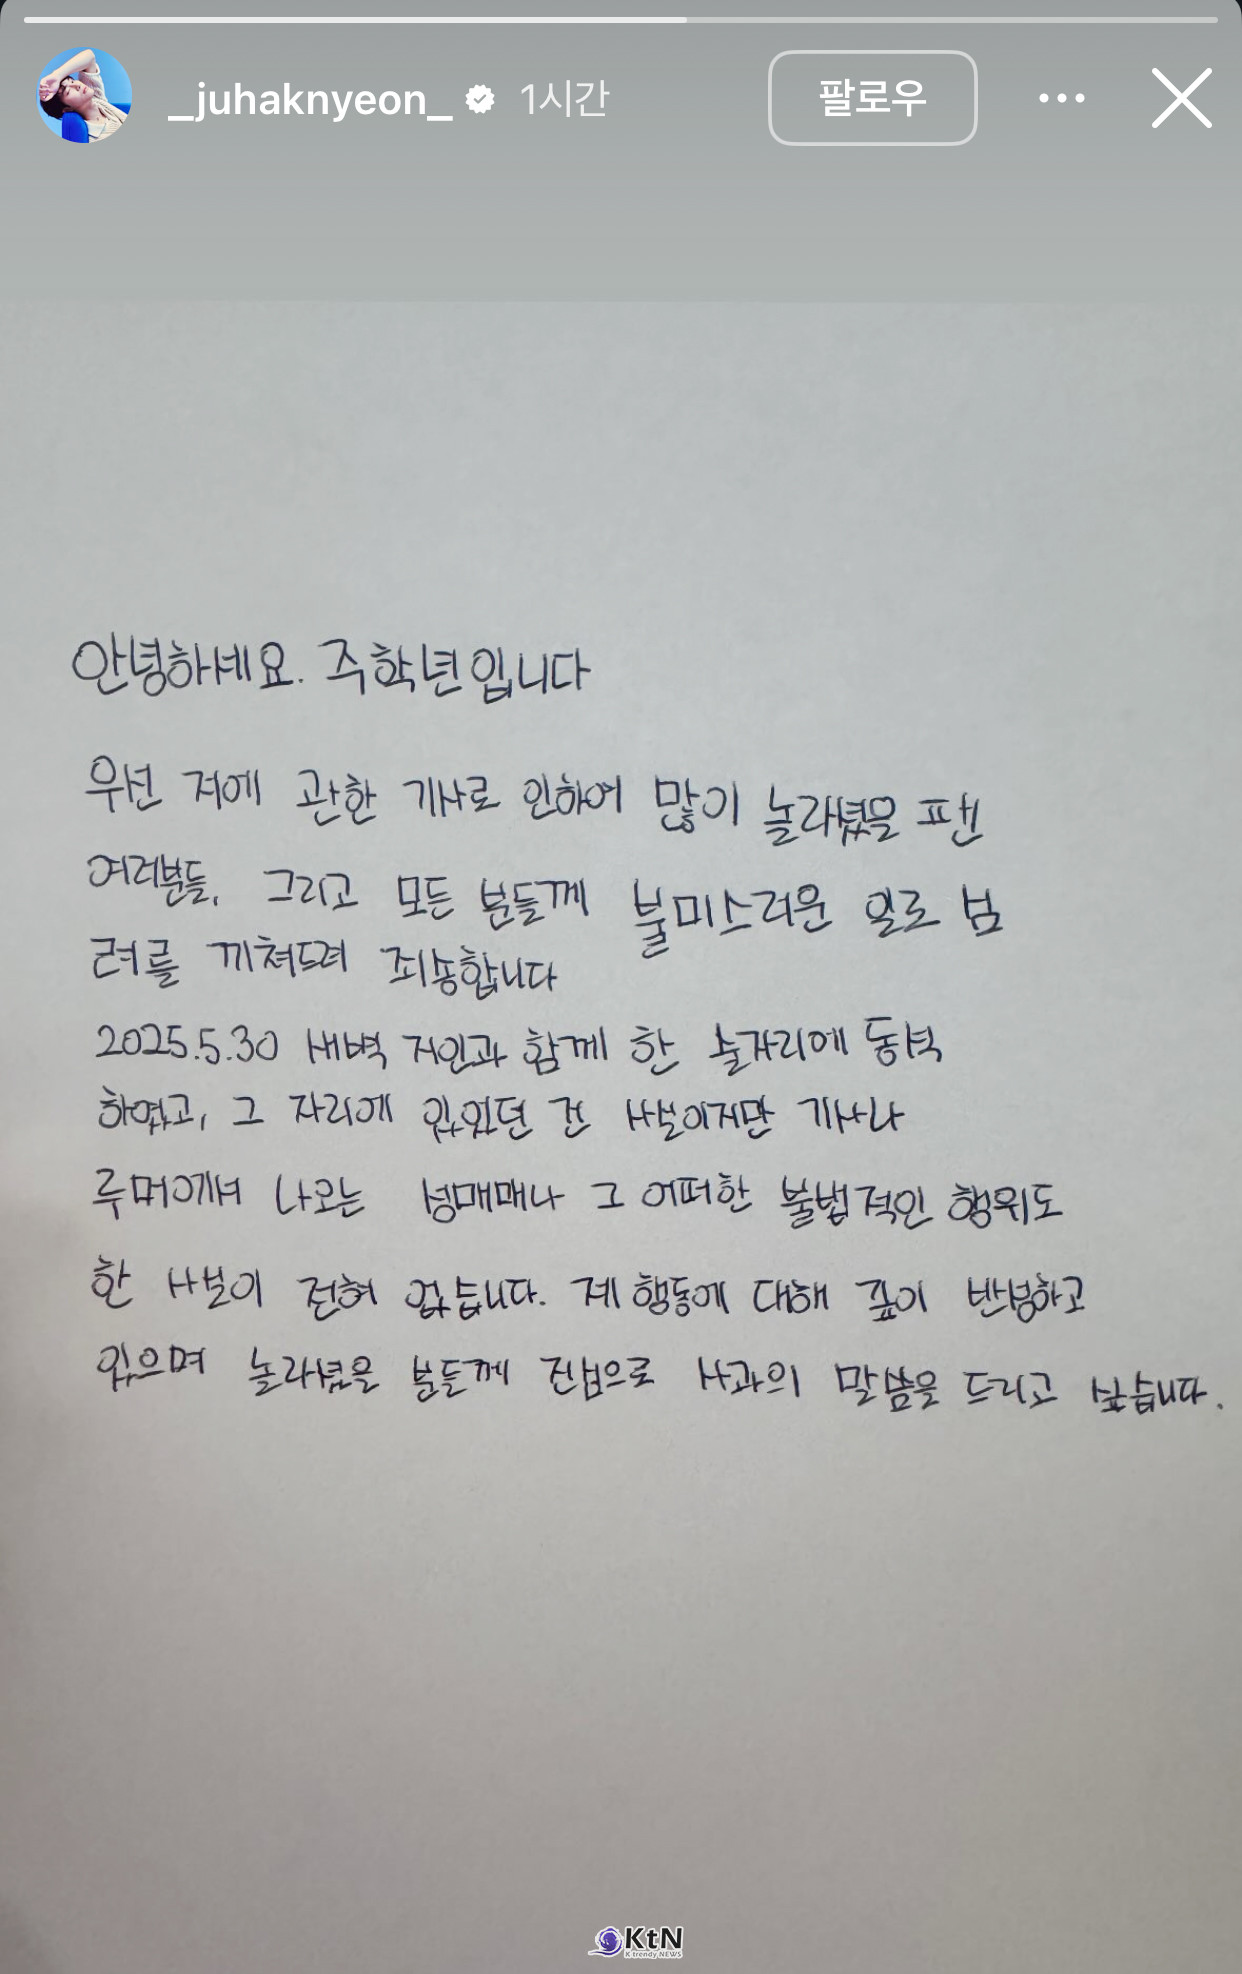 _juhaknyeon_ 1시간 팔로우
안녕하세요. 주학년입니다
우선 저에 관한 기사로 인하여 많이 놀라셨을 팬
여러분들, 그리고 모든 분들께 불미스러운 일로 심
려를 끼쳐드려 죄송합니다
2025.5.30 새벽 지인과 함께 한 술자리에 동석
하였고, 그 자리에 있었던 건 사실이지만 기사나
루머에서 나오는 성매매나 그 어떠한 불법적인 행위도
한 사실이 전혀 없습니다. 제 행동에 대해 깊이 반성하고
있으며 놀라셨을 분들께 진심으로 사과의 말씀을 드리고 싶습니다.
KtN
K trendy NEWS